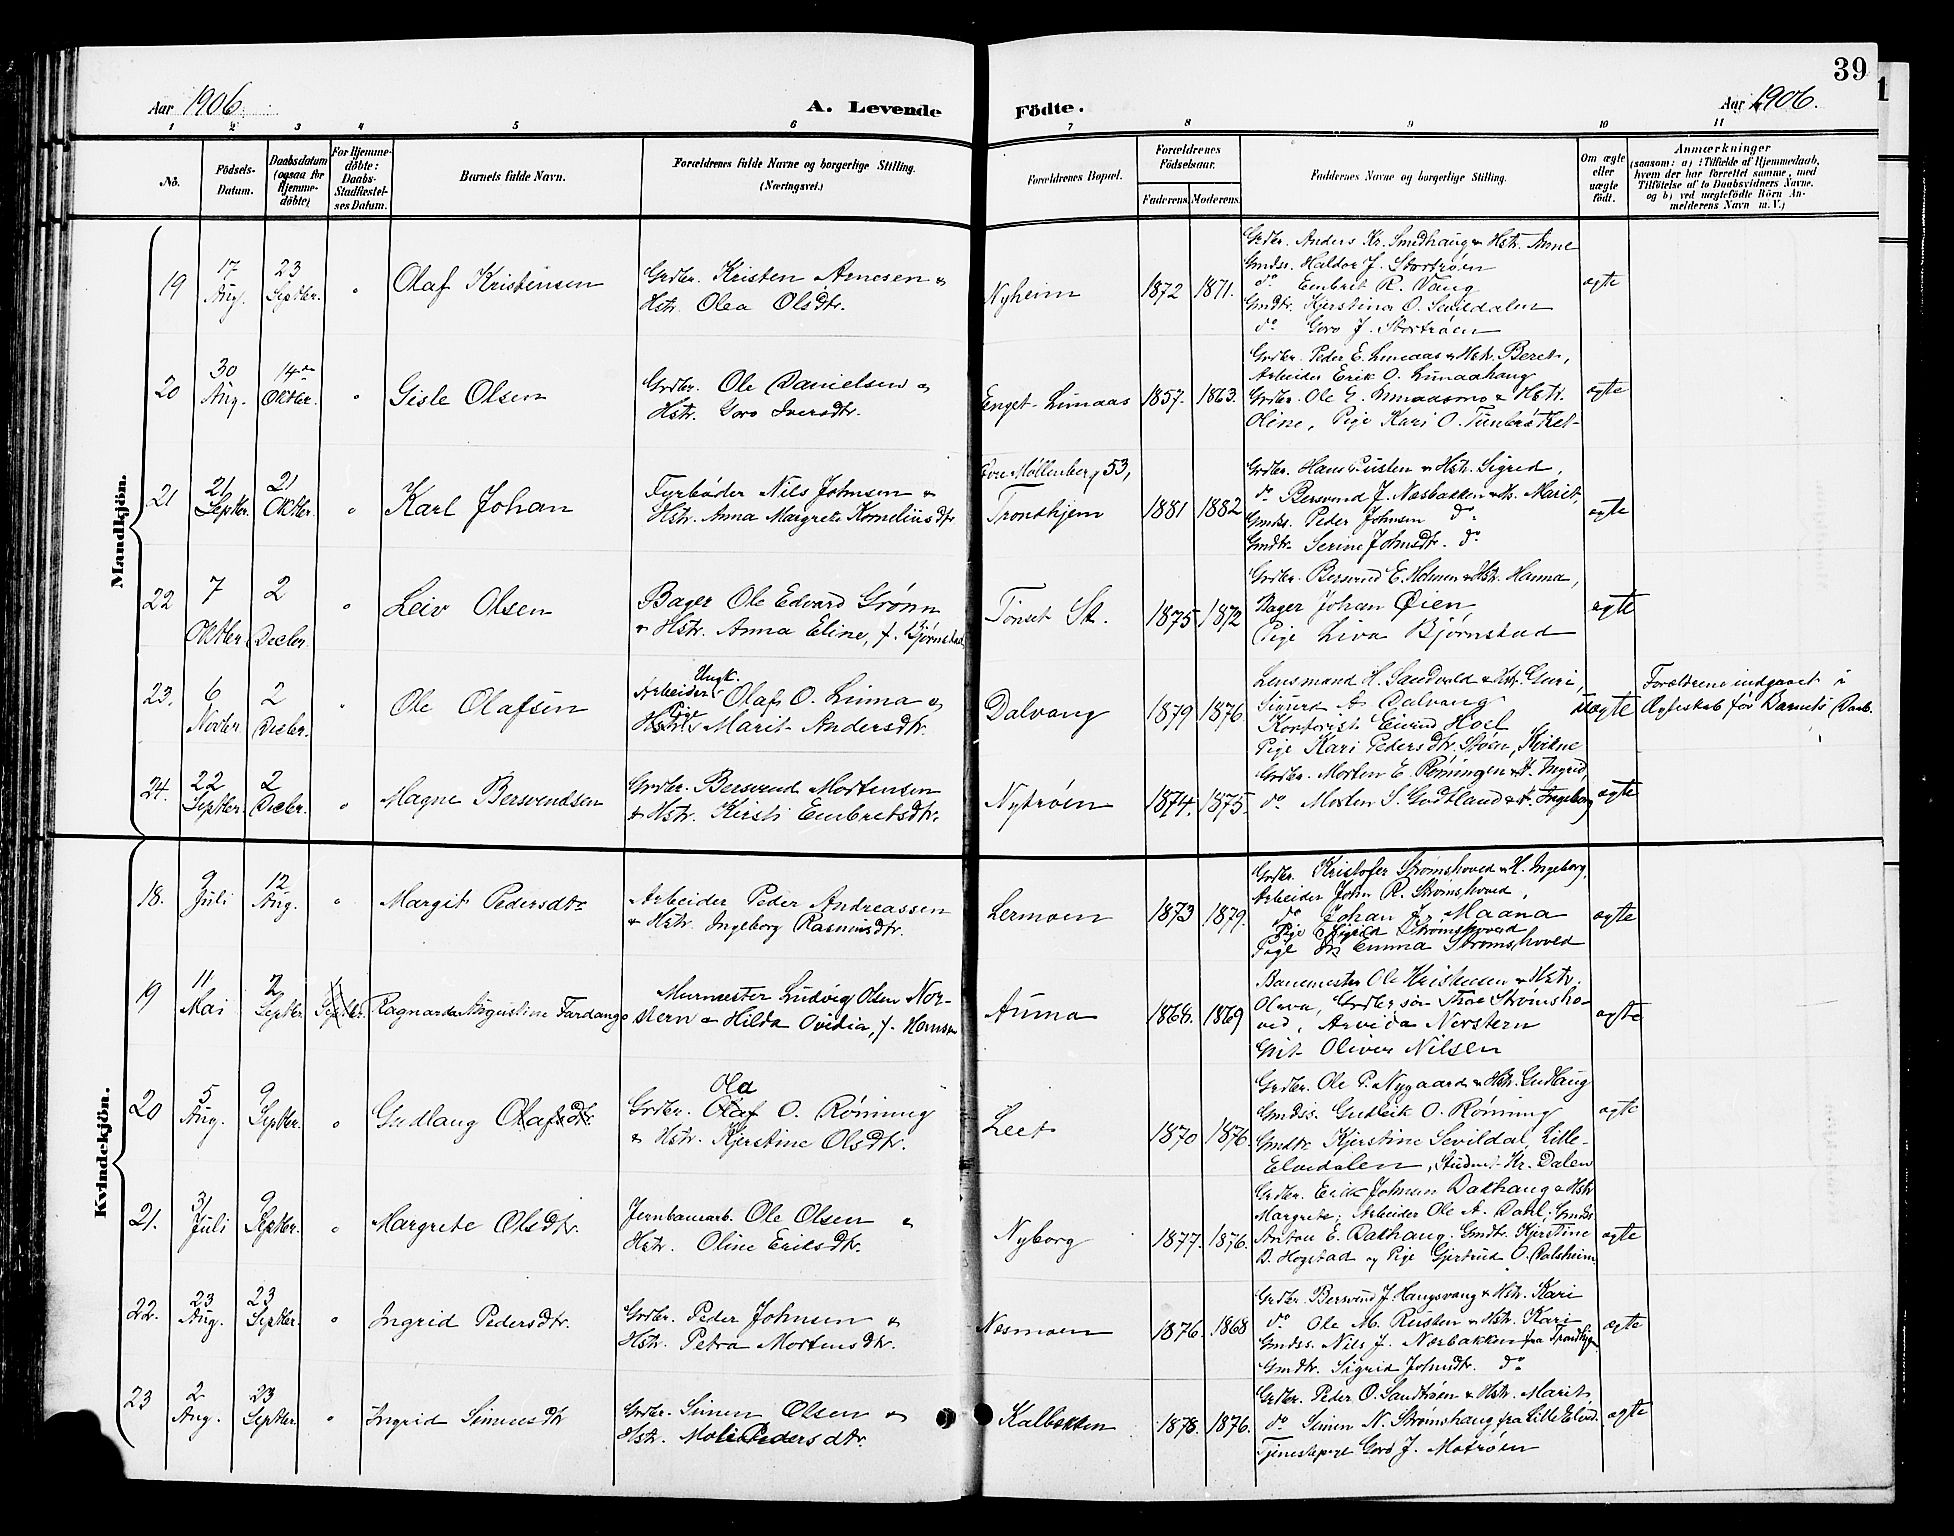 39
Aar 1906. A. Levende Födte. Aar 1906.
1 2 3 4 5 6 7 8 9 10 11
No.
Födsels-
Datum.
Daabsdatum
(ogsaa for
Hjemme-
døbte)
For Hjemme-
døbte:
Daabs-
Stadfæstel-
ses Datum.
Barnets fulde Navn.
Forældrenes fulde Navne og borgerlige Stilling.
(Næringsvei.)
Forældrenes Bopæl.
Forældrenes
Födselsaar.
Faderens Moderens
Faddernes Navne og borgerlige Stilling.
Om ægte
eller
uægte
født.
Anmærkninger
(saasom: a) i Tilfælde af Hjemmedaab,
hvem der har forrettet samme, med
Tilføielse af to Daabsvidners Navne.
og b) ved uægtefödte Börn An-
melderens Navn m. V.)
Mandkjön.
19
17
Aug.
23
Septbr.
"
Olaf Kristensen
Grdbr. Kristen Arnesen &
Hstr. Olea Olsdtr.
Nyheim
1872 1871.
Grdbr. Anders Kr. Smedhaug & Hstr. Anne
Gmdss. Haldor J. Stortrøen
do Embrit R. Vang
Gmdtr. Kjerstina O. Sevildalen
do Goro J. Stortrøen
ægte
20
30
Aug.
14de
Oktbr.
"
Gisle Olsen
Grdbr. Ole Danielsen &
Hstr. Goro Iversdtr.
Enget-Lunaas
1857. 1863.
Grdbr. Peder E. Lunaas & Hstr. Beret,
Arbeider Erik O. Lunaahaug
Grdbr. Ole E. Lunaasmo & Hstr.
Oline, Pige Kari O. Tunbrøttet
ægte
21
21
Septbr.
21
Oktbr.
"
Karl Johan
Fyrbøder Nils Johnsen &
Hstr. Anna Margrete Korneliusdtr
Møllenberg 53,
Trondhjem
1881 1882
Grdbr. Hans Rusten & Hstr. Sigrid,
do Bersvend J. Næsbakken & H. Marit,
Gmdss. Peder Johnsen do
Gmdtr. Serine Johnsdtr. do
ægte
22
7
Oktbr.
2
Decbr.
"
Leiv Olsen
Bager Ole Edvard Grønn
& Hstr. Anna Eline, f. Bjørnstad
Tønset St.
1875 1872
Grdbr. Bersvend E. Holmen & Hstr. Hanna,
Bager Johan Øien
Pige Liva Bjørnstad
ægte
23.
6
Novbr.
2
Decbr.
"
Ole Olafsen
Ungk.
Arbeider Olaf O. Lunna &
Pige
Hstr. Marit Andersdtr.
Dalvang
1879 1876.
Lensmand H. Sandvold & Hstr. Guri,
Sigurd A. Dalvang
Kontorist Eivind Hoel
Pige Kari Pedersdtr. Støen, Kvikne
Uægte
Forældrene indgaaet i
Ægteskab før Barnets Daab.
24.
22
Septbr.
2
Decbr.
"
Magne Bersvendsen
Grdbr. Bersvend Mortensen
& Hstr. Kirsti Embretsdtr.
Nytrøen
1874. 1875.
Grdbr. Morten E. Rønningen & H. Ingrid,
do Morten S. Godtland & H. Ingeborg
ægte
Kvindekjön.
18.
9
Juli
12
Aug.
"
Margit Pedersdtr
Arbeider Peder Andreassen
& Hstr. Ingeborg Rasmusdtr.
Lermoen
1873 1879.
Grdbr. Kristofer Strømshoved & H. Ingeborg.
Arbeider John R. Strømshoved,
do Johan Kr. Maana
Pige Sigrid Strømshoved
Pige Emma Strømshoved
ægte
19
11
Mai
2
Septbr
Septbr.
Ragnarda Augustine Fardango
Murmester Ludvig Olsen Nor-
stern & Hilda Ovidia, f. Hansen
Auma
1868. 1869
Banemester Ole Kristensen & Hstr.
Olava, Grdbrsøn Thor Strømsho-
ved, Arvida Nerstern
Grit Oliver Nilsen
ægte
20
5
Aug.
9
Septbr.
"
Gudlaug Olafsdtr.
Ola
Grdbr. Olaf O. Rønning
& Hstr. Kjerstine Olsdtr.
Leet
1870 1876.
Grdbr. Ole P. Nygaard & Hstr. Gudlaug
Gmdss. Gudleik O. Rønning
Gmdtr. Kjerstine Sevildal, Lille-
Elvedalen, Student Kr. Dalen
ægte
21.
31
Juli
9
Septbr.
"
Margrete Olsdtr.
Jernbanearb. Ole Olsen &
Hstr. Oline Eriksdtr.
Nyborg
1877. 1876.
Grdbr. Erik Johnsen Bakhaug & Hstr
Margrete; Arbeider Ole A. Dahl; Gmdss.
Anton E. Bakhaug. Gmdtr. Kjerstine
B. Hogstad og Pige Gjertrud O. Dalsheim
ægte
22.
23
Aug.
23
Septbr.
"
Ingrid Pedersdtr.
Grdbr. Peder Johnsen &
Hstr. Petra Mortensdtr.
Næsmoen
1876. 1868
Grdbr. Bersvend J. Haugsvang & Hstr. Kari
do Ole M. Rusten & Hstr. Kari
Gmdss. Nils J. Næsbakken fra Trondhjem
Gmdtr. Sigrid Johnsdtr. do
ægte
23
2
Aug.
23
Septbr.
"
Ingrid Simensdtr
Grdbr. Simen Olsen &
Hstr. Moli Pedersdtr.
Kalbækken
1878. 1876.
Grdbr. Peder O. Sandtrøen & Hstr. Marit,
do Simen N. Strømshaug fra Lille Elvd.
Tjenestepige Goro J. Motrøen
ægte